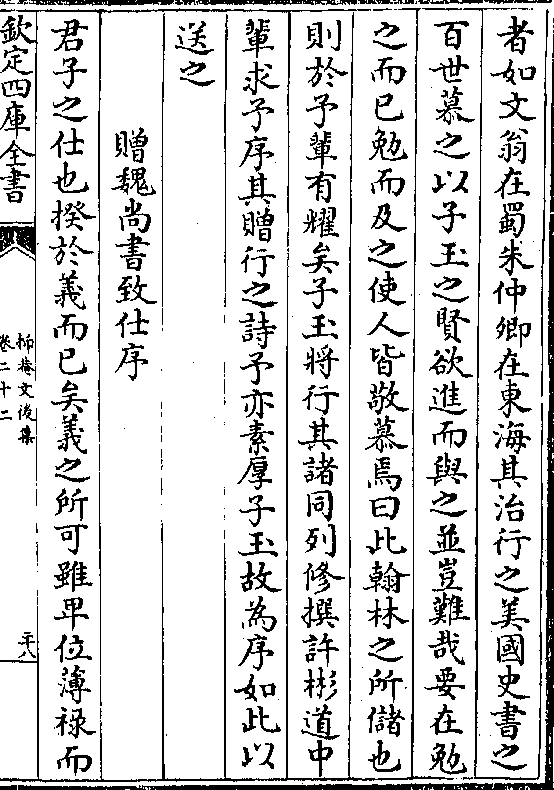 者如文翁在蜀朱仲卿在東海其治行之美國史書之
百世慕之以子玉之賢欲進而與之並豈難哉要在勉
之而已勉而及之使人皆敬慕焉曰此翰林之所儲也
則於予輩有耀矣子玉將行其諸同列修撰許彬道中
輩求予序其贈行之詩予亦素厚子玉故為序如此以
送之
贈魏尚書致仕序
君子之仕也揆於義而已矣義之所可雖卑位薄祿而
欽定四庫全書
抑菴文後集
卷二十二